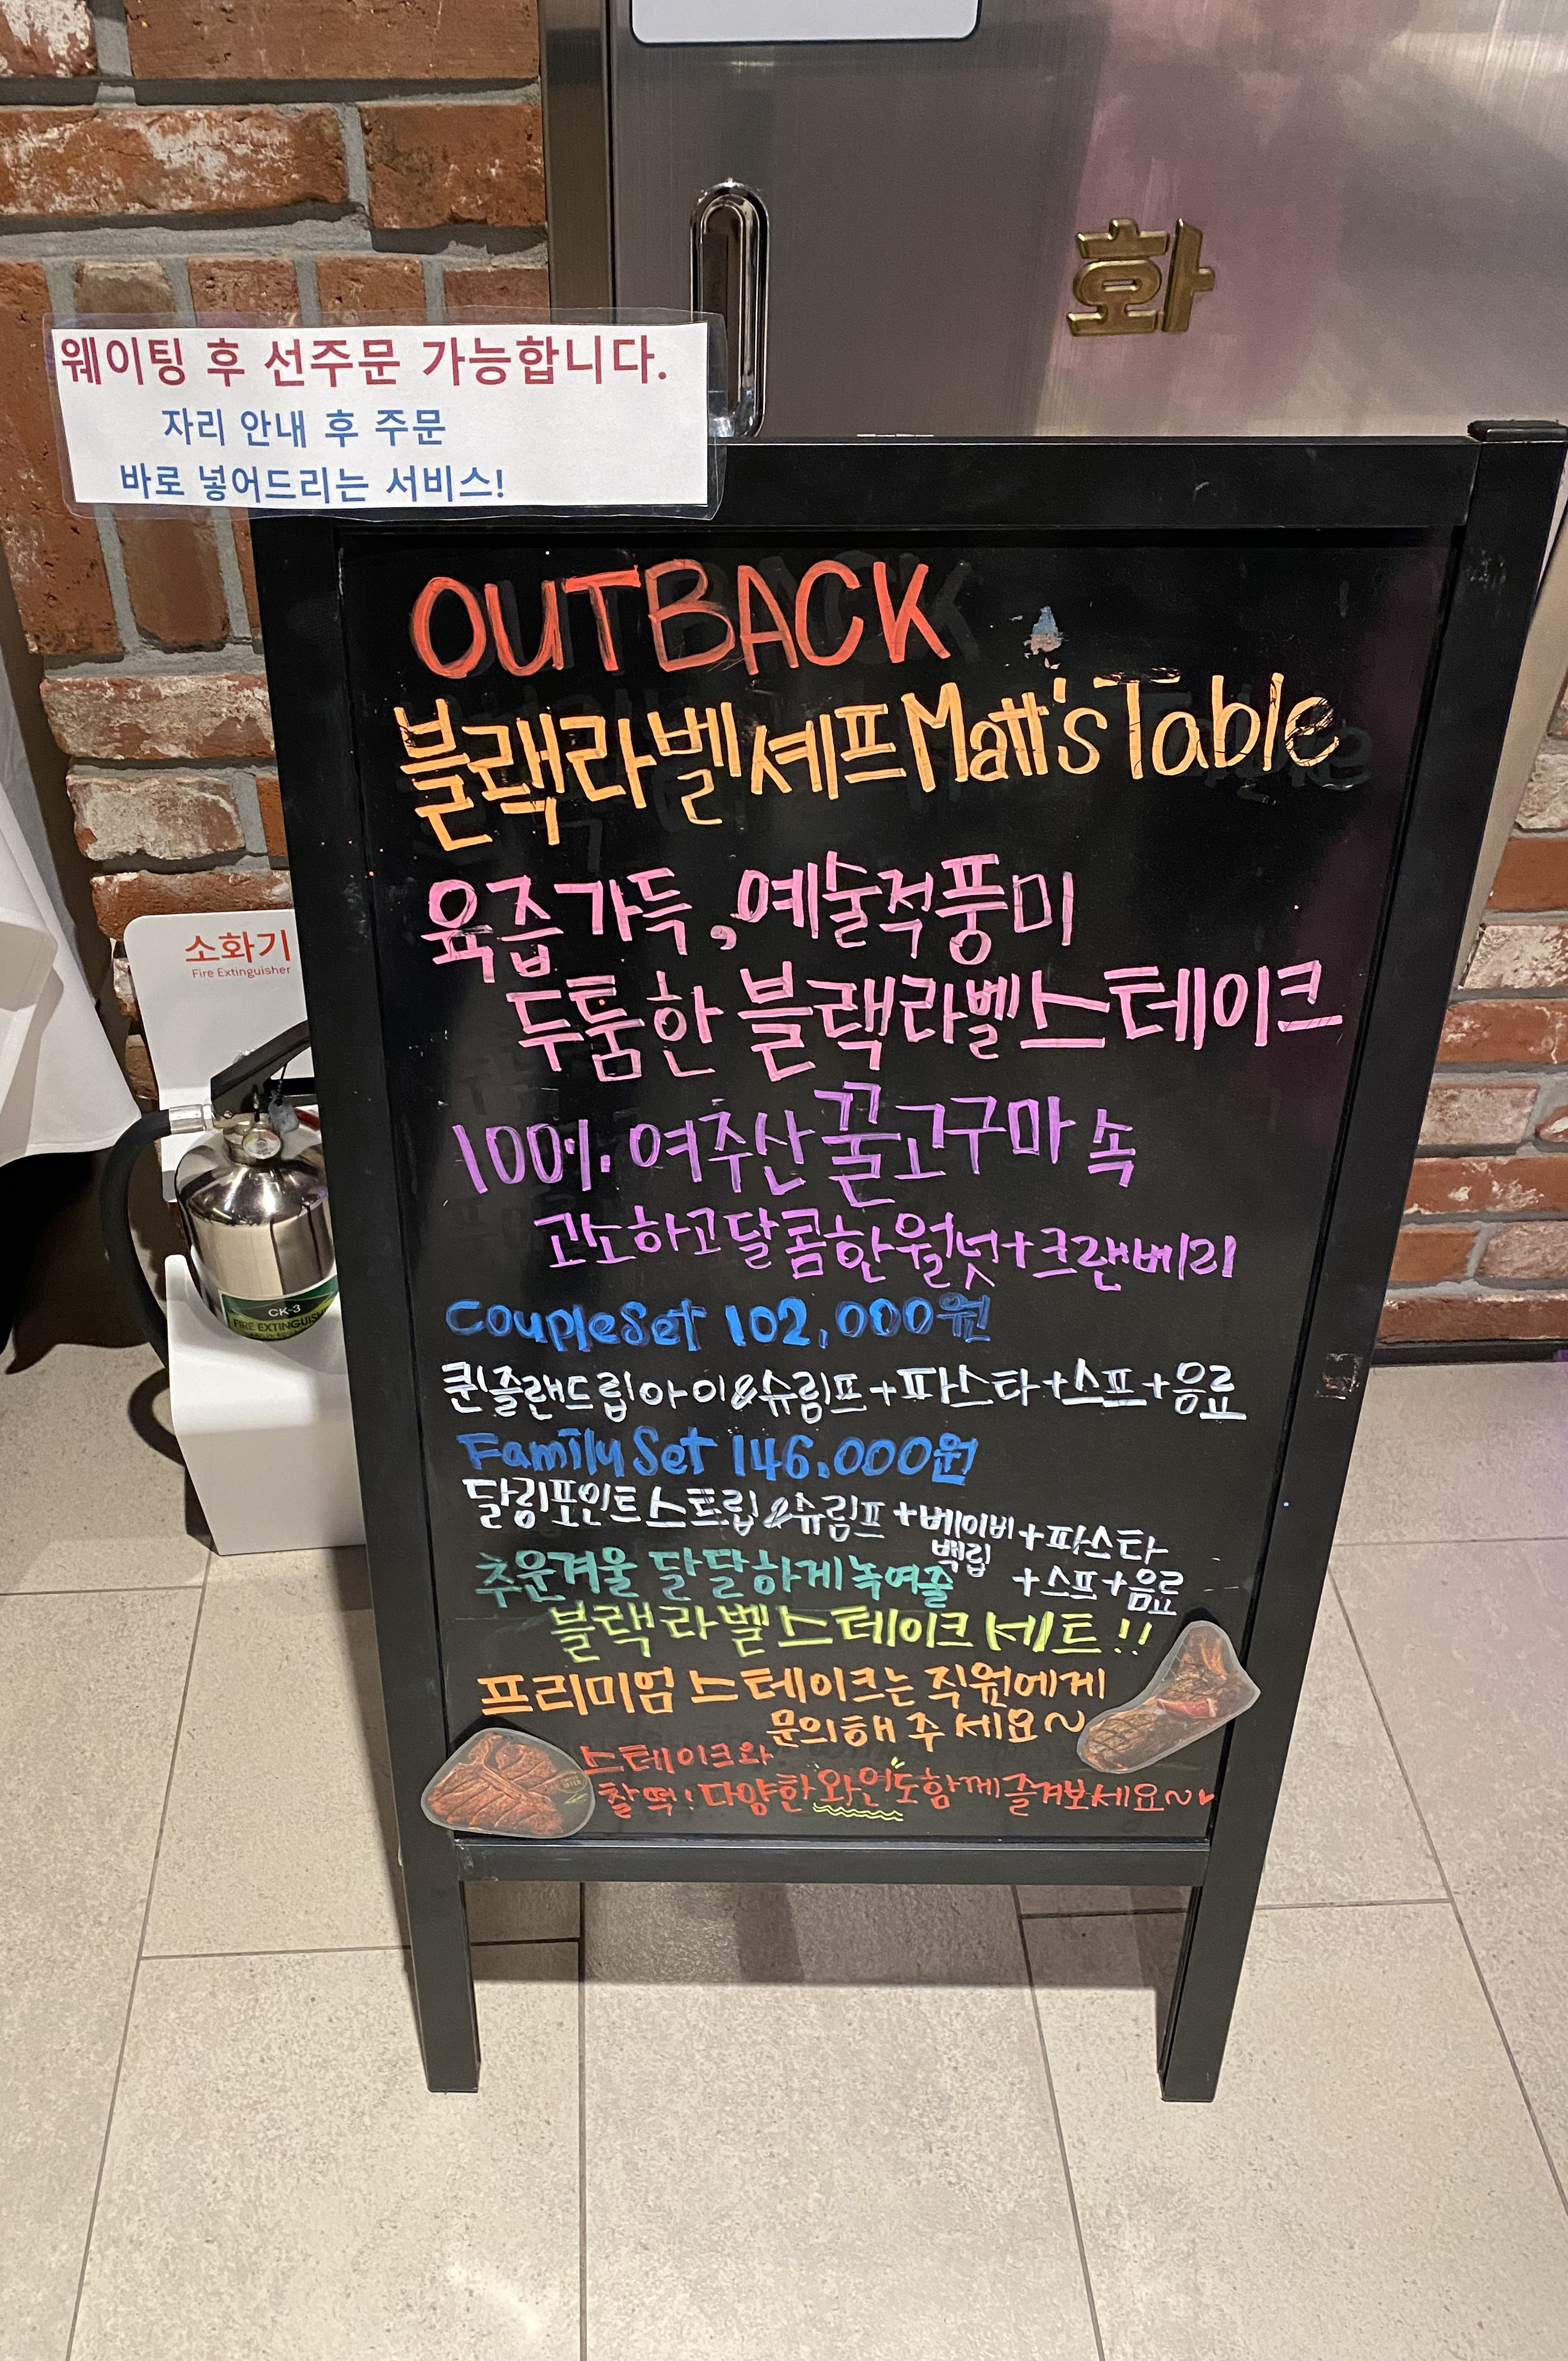 화
웨이팅 후 선주문 가능합니다.
자리 안내 후 주문
바로 넣어드리는 서비스!
OUTBACK
블랙라벨셰프Matt's Table
육즙가득,예술적풍미
두툼한 블랙라벨스테이크
100% 여주산꿀고구마 속
고소하고달콤한월넛+크랜베리
CoupleSet 102,000원
퀸즐랜드립아이&슈림프+파스타+스프+음료
Family Set 146,000원
달링포인트스트립&슈림프+베이비백립+파스타
+스프+음료
추운겨울 달달하게녹여줄
블랙라벨스테이크 세트!!
프리미엄 스테이크는 직원에게
문의해 주 세요~
스테이크와
찰떡! 다양한 와인도함께즐겨보세요~♥
소화기
Fire Extinguisher
CK-3
FIRE EXTINGUISH